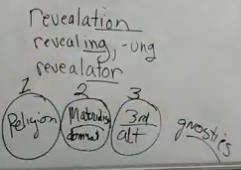 revealation
revealing, -ung
revealator
1 2 3
Religion
3rd
alt
gnostics